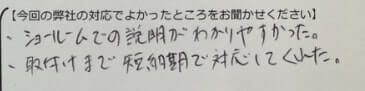 【今回の弊社の対応でよかったところをお聞かせください】
・ショールームでの説明がわかりやすかった。
・取付けまで短納期で対応してくれた。